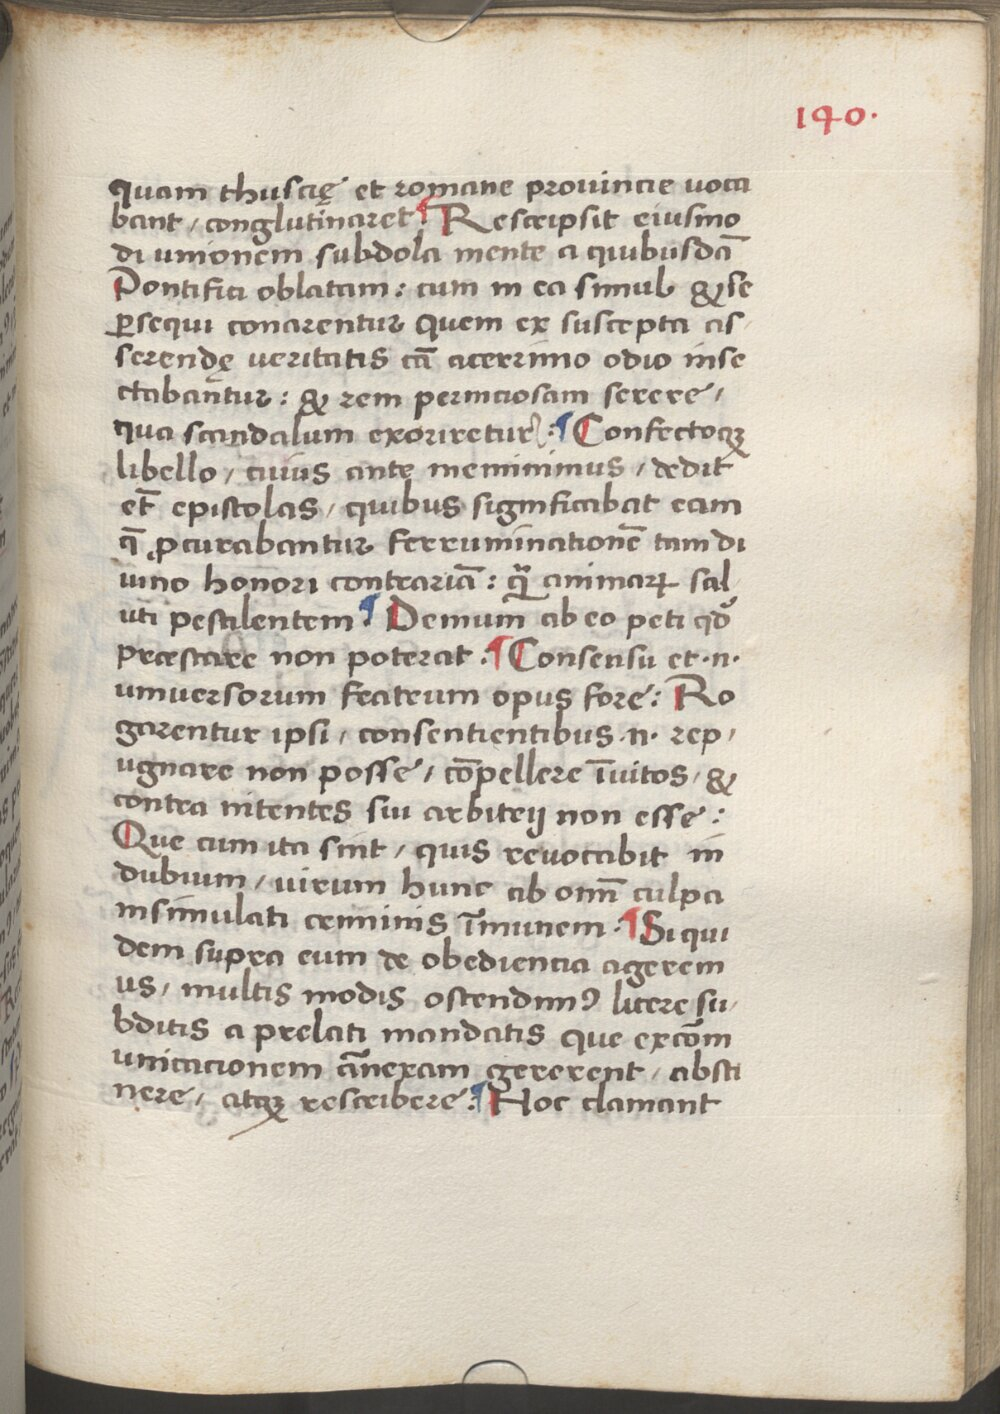 140.
quam thuscię et romane prouincie uoca
bant / conglutinaret ¶ Rescripsit eiusmo
di unionem subdola mente a quibusdā
Pontifici oblatam : cum in ea simul & se
ꝑsequi conarentur quem ex suscepta as
serendę ueritatis cā acerrimo odio inse
ctabantur : & rem perniciosam serere /
qua scandalum exoriretur : ¶ Confectoqꝫ
libello / cuius ante meminimus / dedit
et̄ epistolas / quibus significabat eam
q̄ ꝓcurabantur ferruminationē tam di
uino honori contrariā : q̄ animaꝝ sal
uti pestilentem ¶ Demum ab eo peti qd̓
prestare non poterat : ¶ Consensu et·n·
uniuersorum fratrum opus fore : Ro
garentur ipsi / consentientibus ·n· rep /
ugnare non posse / cōpellere īuitos / &
contra nitentes sui arbitrij non esse :
Que cum ita sint / quis reuocabit in
dubium / uirum hunc ab omī culpa
insimulati criminis īmunem · ¶ Siqui
dem supra eum de obediencia agerem
us / multis modis ostendimꝰ licere su /
bditis a prelati mandatis que excōm
unicacionem ānexam gererent / absti
nere / atqꝫ rescribere : ¶ Hoc clamant